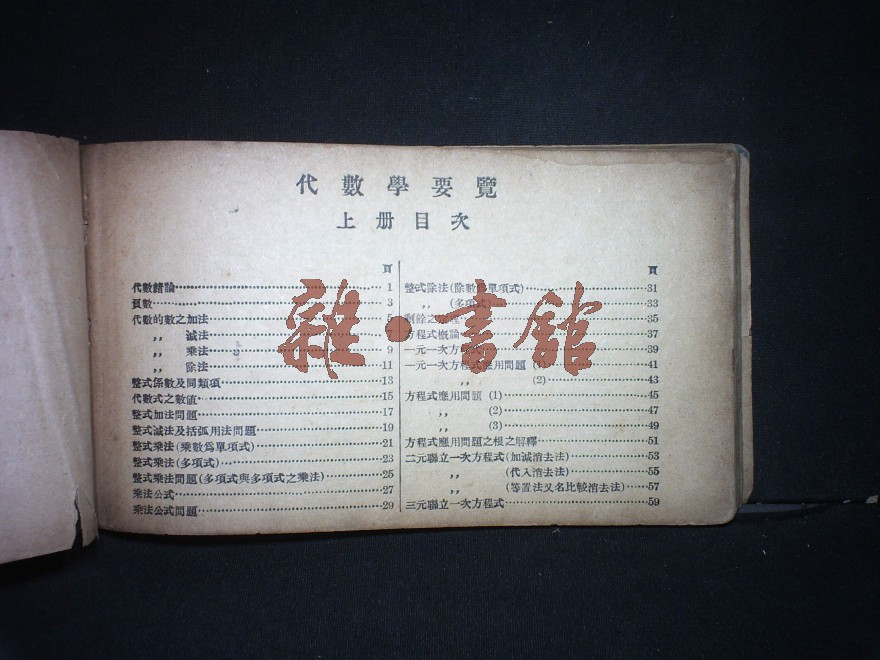 代數學要覽
上册目次
頁
代數緒論 1
負數 3
代數的數之加法 5
,, 減法 7
,, 乘法 9
,, 除法 11
整式係數及同類項 13
代數式之數値 15
整式加法問題 17
整式減法及括弧用法問題 19
整式乘法(乘數爲單項式) 21
整式乘法(多項式) 23
整式乘法問題(多項式與多項式之乘法) 25
乘法公式 27
乘法公式問題 29
頁
整式除法(除數爲單項式) 31
,, (多項式) 33
剩餘之定理 35
方程式槪論 37
一元一次方程式 39
一元一次方程式應用問題 (1) 41
,, (2) 43
方程式應用問題 (1) 45
,, (2) 47
,, (3) 49
方程式應用問題之根之解釋 51
二元聯立一次方程式(加減消去法) 53
,, (代入消去法) 55
,, (等置法又名比較消去法) 57
三元聯立一次方程式 59
雜·書館